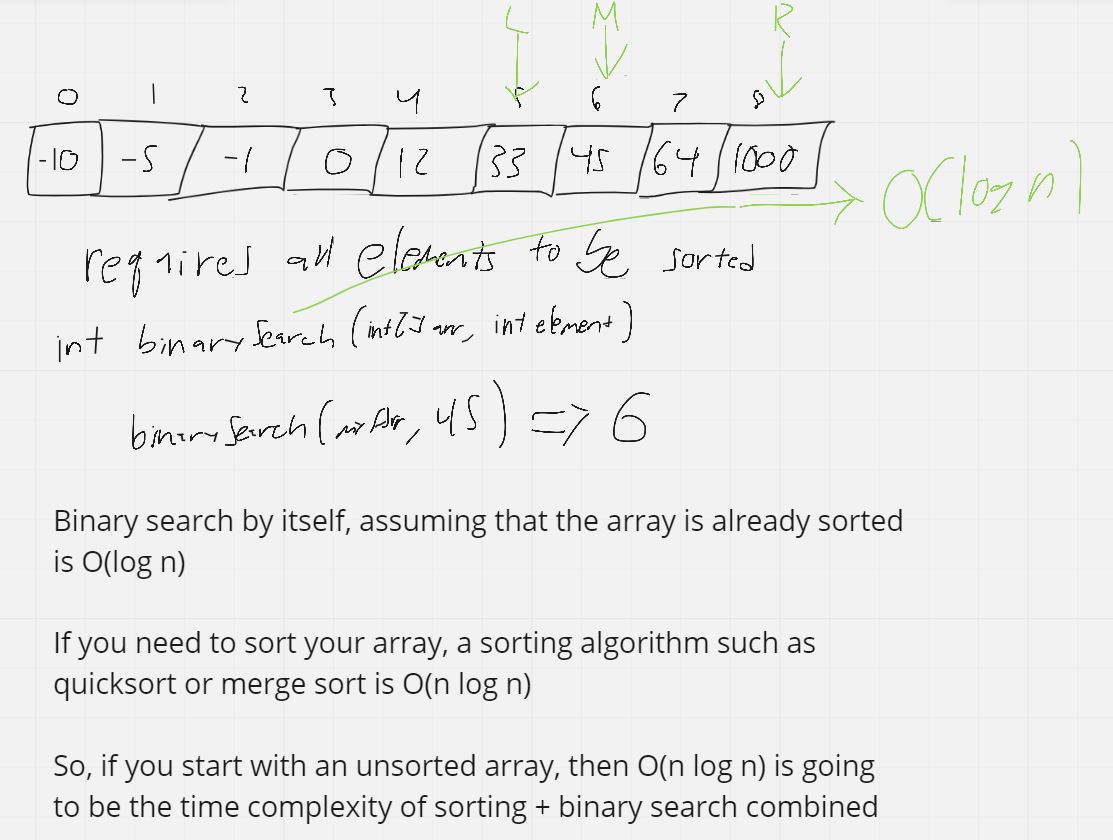 L M R
0 1 2 3 4 5 6 7 8
-10 -5 -1 0 12 33 45 64 1000
O(log n)
requires all elements to be sorted
int binarySearch(int[] arr, int element)
binarySearch(myArr, 45) => 6
Binary search by itself, assuming that the array is already sorted
is O(log n)
If you need to sort your array, a sorting algorithm such as
quicksort or merge sort is O(n log n)
So, if you start with an unsorted array, then O(n log n) is going
to be the time complexity of sorting + binary search combined